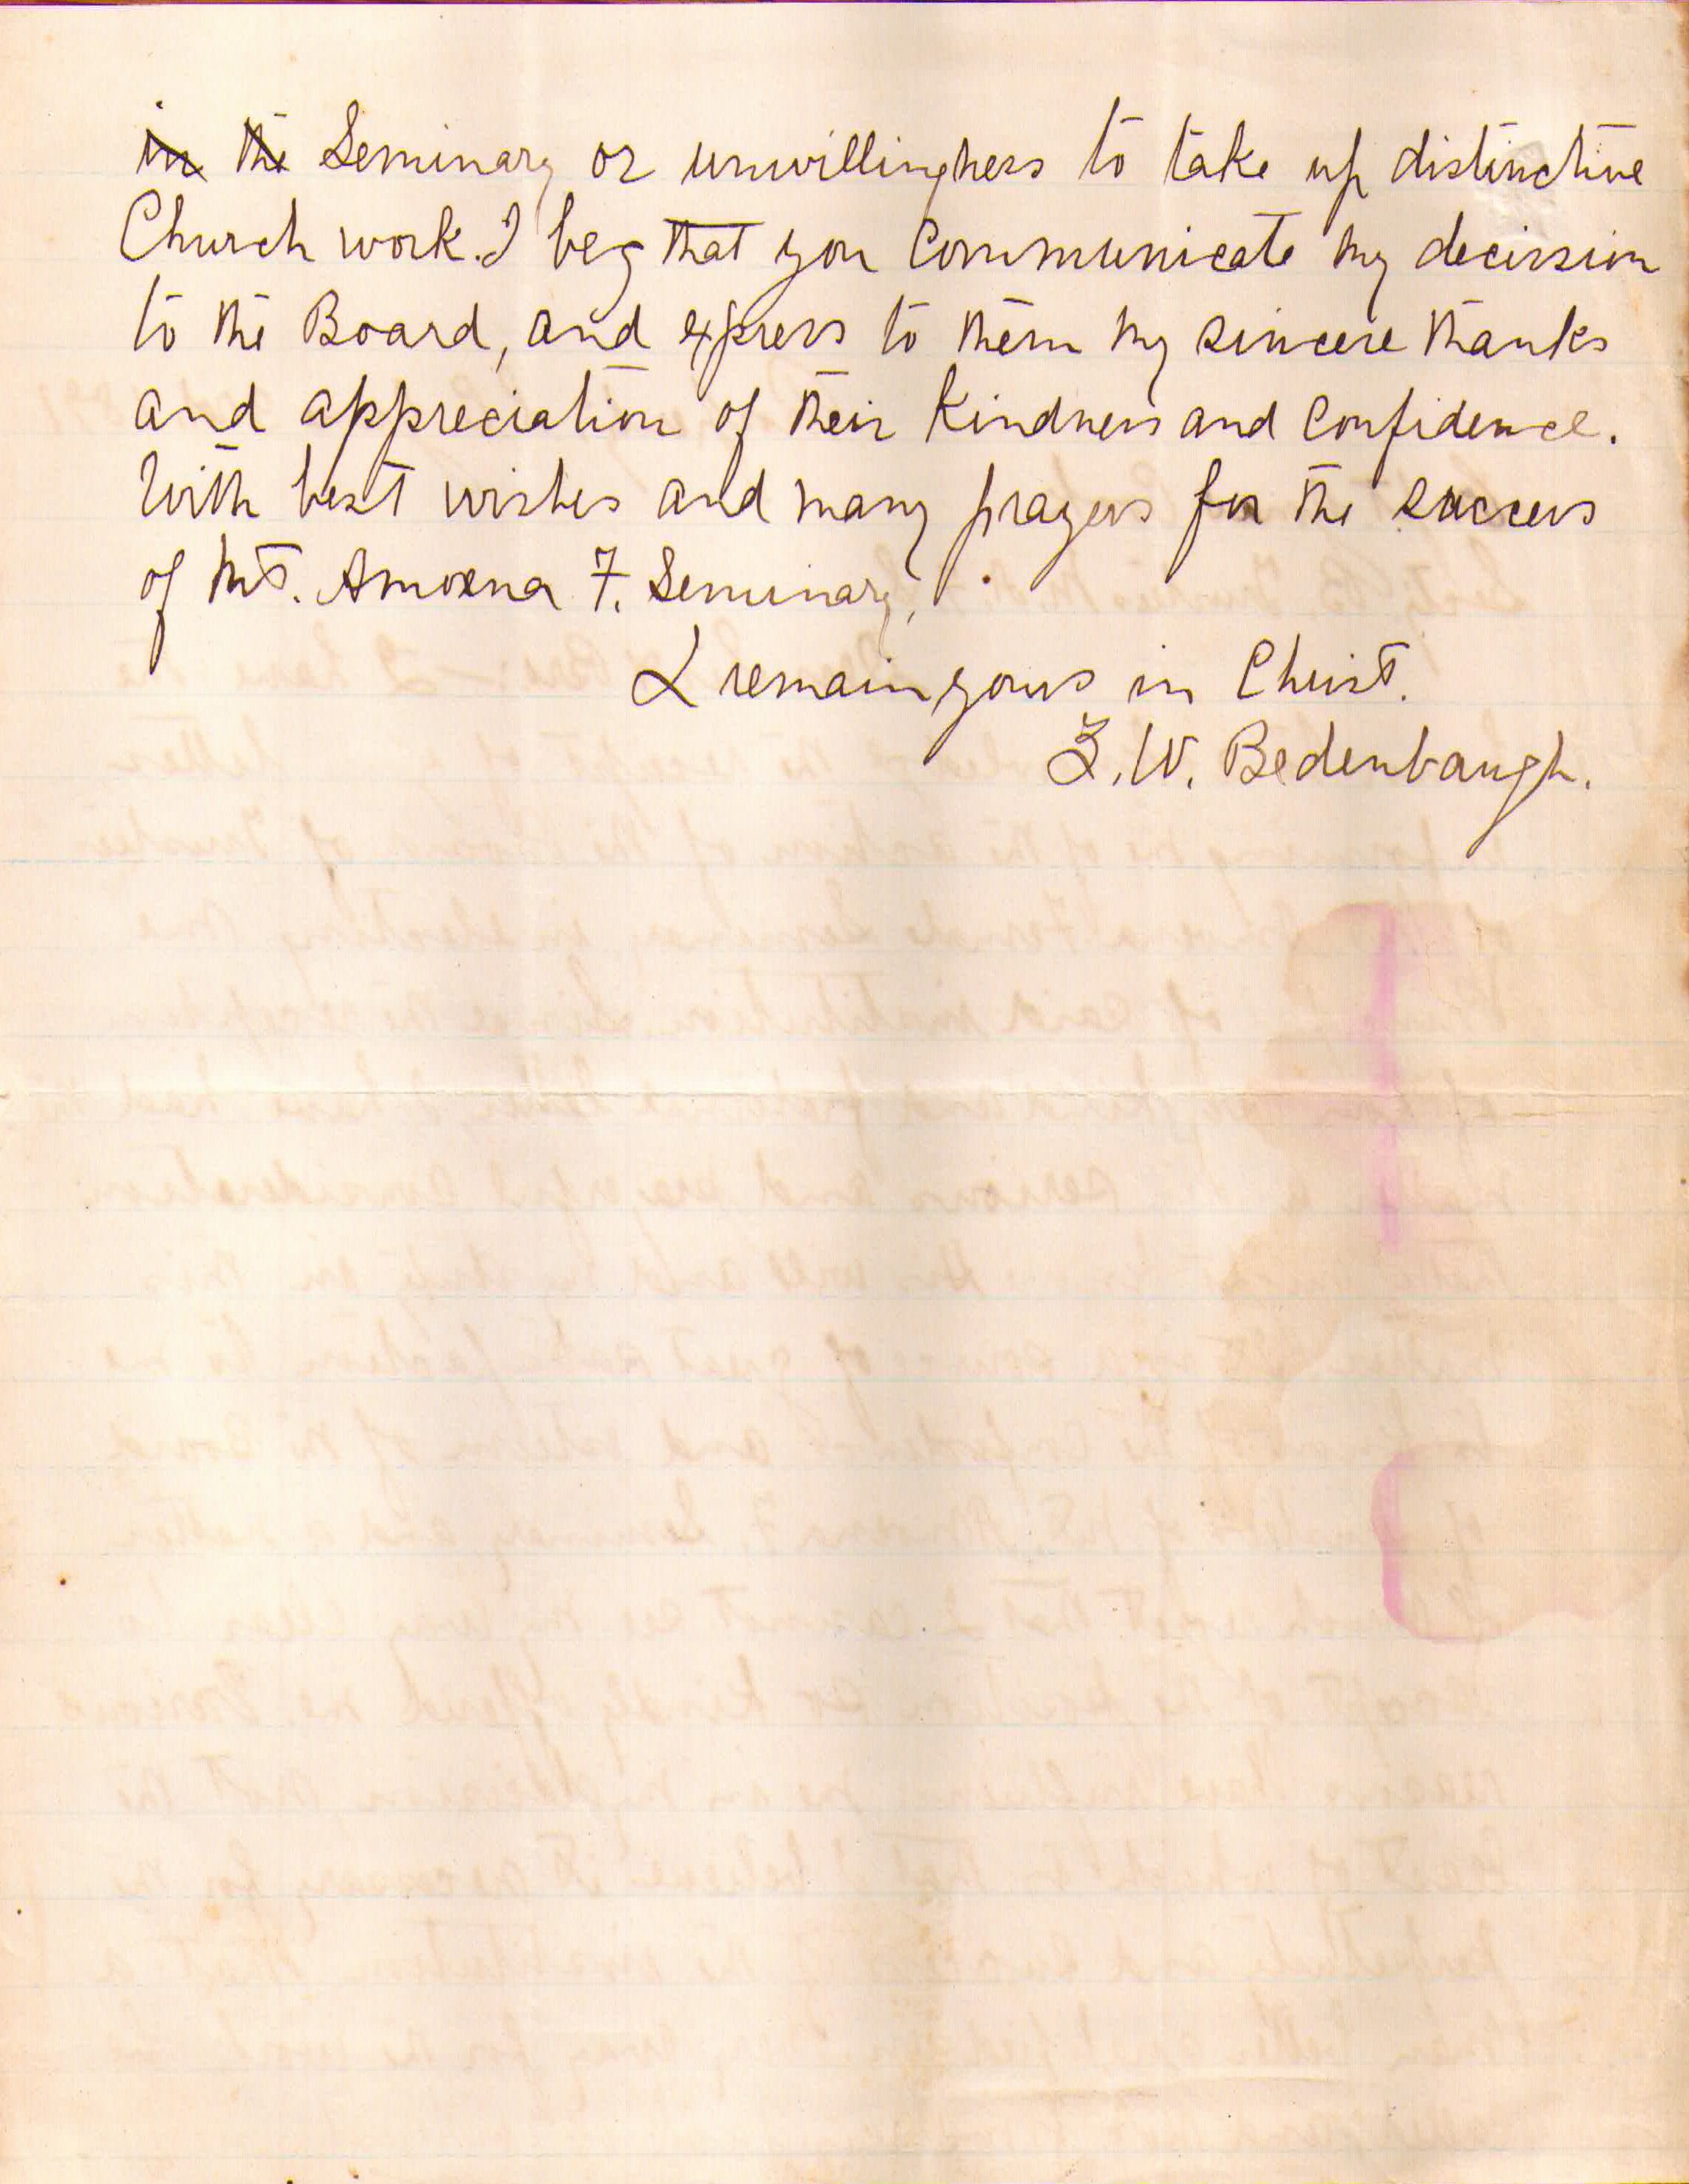 in the Seminary or unwillingness to take up distinctive
Church work. I beg that you communicate my decission
to the Board, and express to them my sincere thanks
and appreciation of their kindness and confidence.
With best wishes and many prayers for the success
of Mt. Amoena F. Seminary,
I remain yours in Christ.
Z. W. Bedenbaugh.